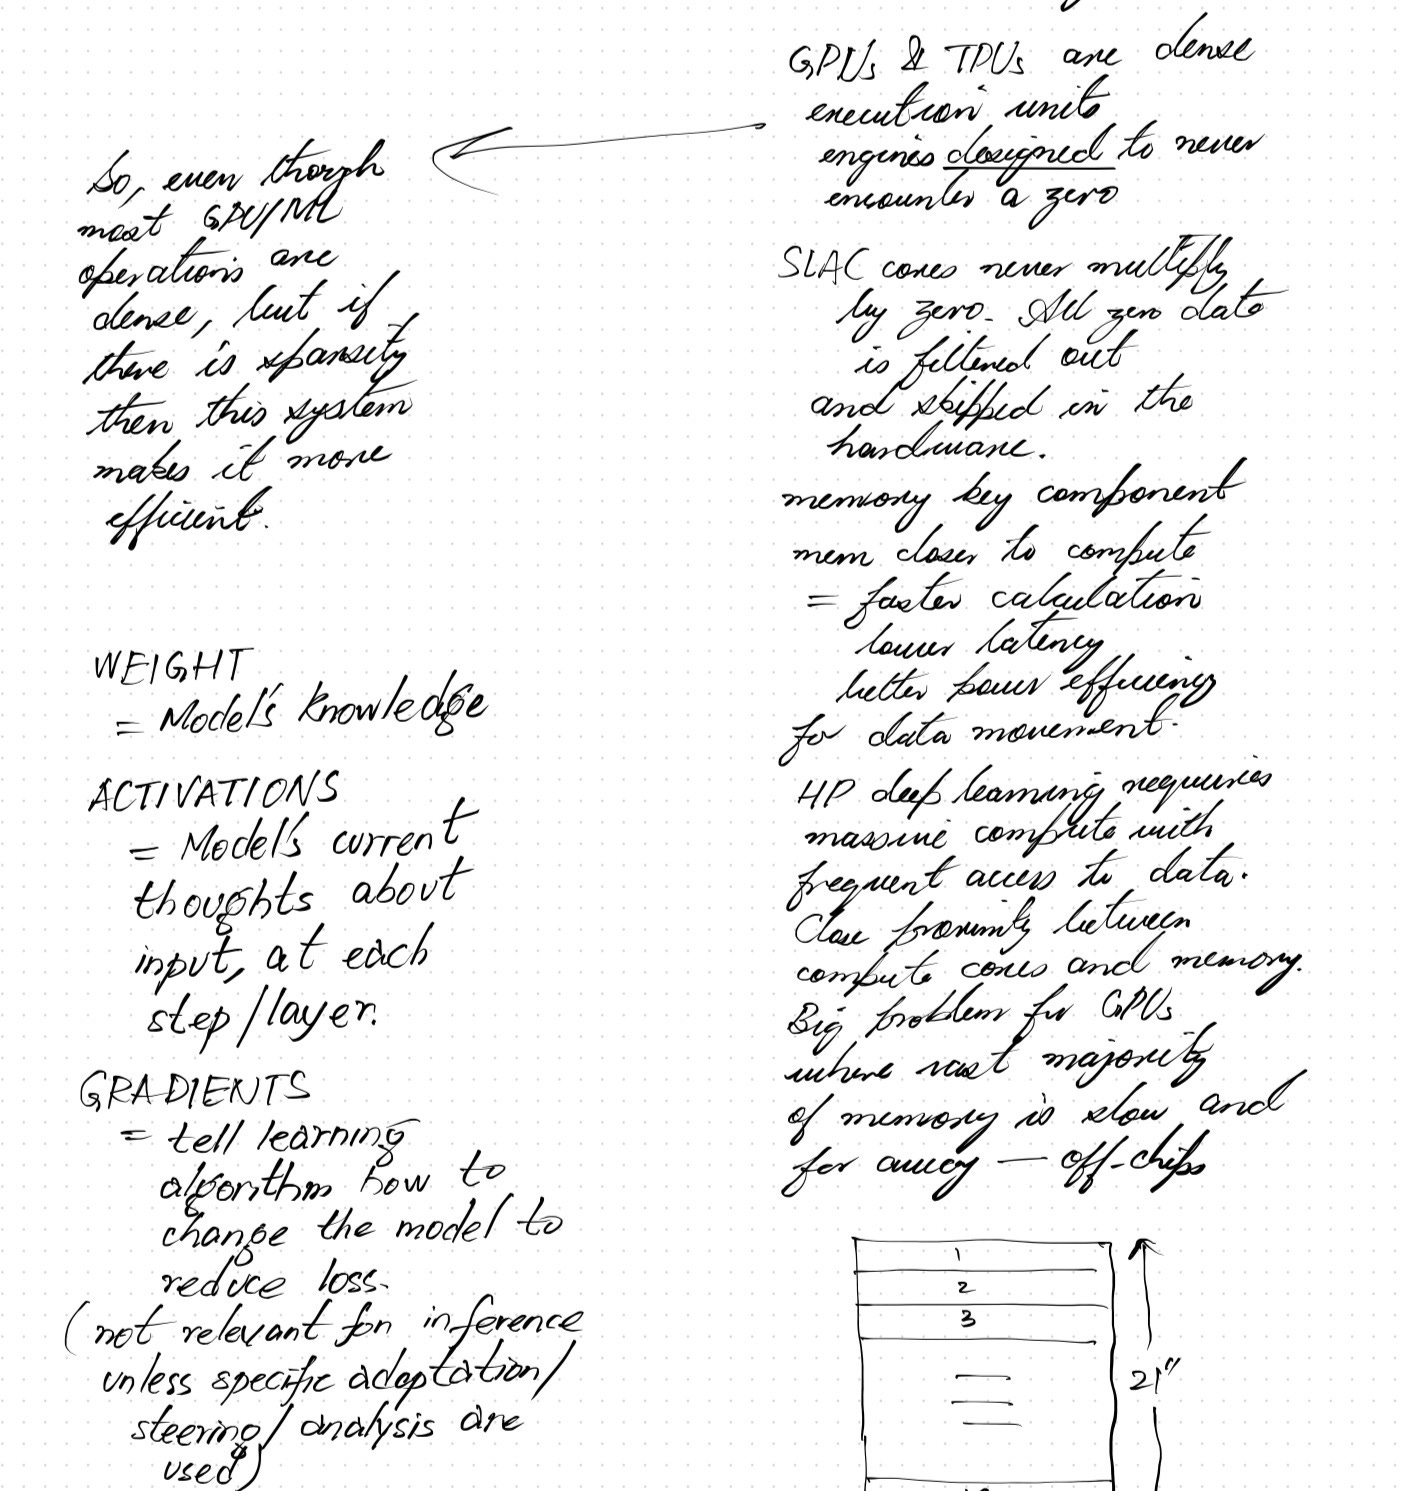 So, even though
most GPU/ML
operations are
dense, but if
there is sparsity
then this system
makes it more
efficient.
WEIGHT
= Model's knowledge
ACTIVATIONS
= Model's current
thoughts about
input, at each
step/layer.
GRADIENTS
= tell learning
algorithm how to
change the model to
reduce loss.
(not relevant for inference
unless specific adaptation/
steering/analysis are
used)
GPUs & TPUs are dense
execution units
engines designed to never
encounter a zero
SLAC cores never multiply
by zero. All zero data
is filtered out
and skipped in the
hardware.
memory key component
mem closer to compute
= faster calculation
lower latency
better power efficiency
for data movement.
HP deep learning requires
massive compute with
frequent access to data.
Close proximity between
compute cores and memory.
Big problem for GPUs
where vast majority
of memory is slow and
far away — off-chips
1
2
3
21"